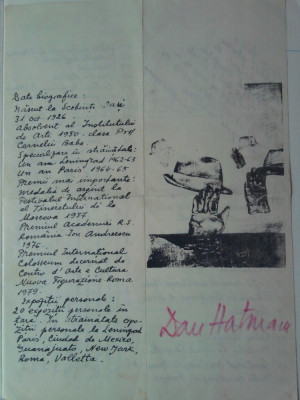 Date biografice:
Născut la Scobinți Iași
31 oct 1926
Absolvent al Institutului
de Arte 1950 - clasa Prof
Corneliu Baba
Specializare în străinătate:
Un an Leningrad 1962-63
Un an Paris 1968-69
Premii mai importante:
Medalia de argint la
Festivalul International
al Tineretului de la
Moscova 1957.
Premiul Academiei R.S.
România Ion Andreescu
1976.
Premiul International
Colosseum decernat de
Centro d'Arte e Cultura
Nuova Figurazione Roma
1979.
Expoziții personale:
20 expoziții personale în
țară. În străinătate expo-
ziții personale la Leningrad
Paris, Ciudad de Mexico,
Guanajuato, New York,
Roma, Valletta.
Dan Hatmanu